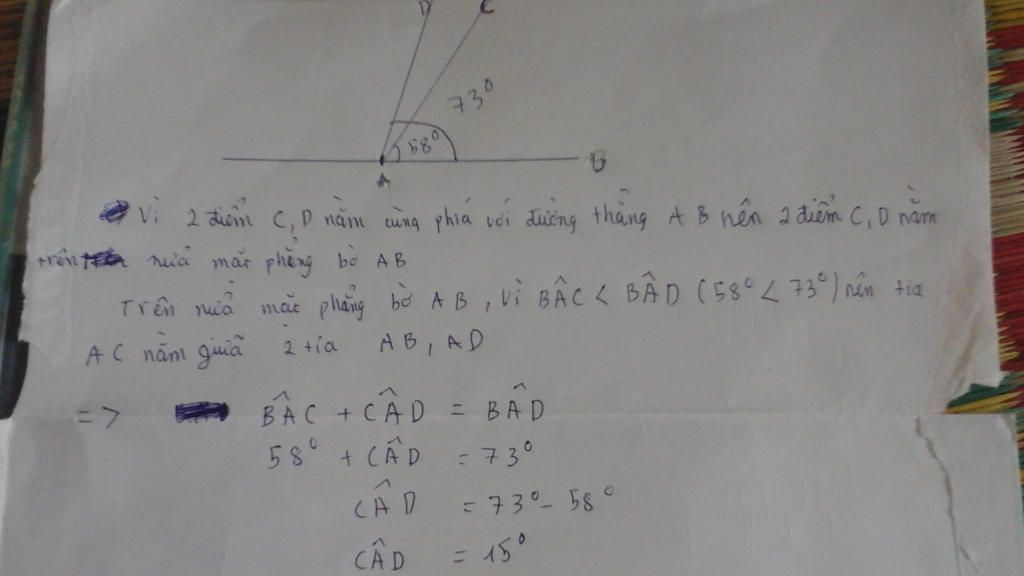 D C
73°
58°
B
A
Vì 2 điểm C, D nằm cùng phía với đường thẳng AB nên 2 điểm C, D nằm
trên nửa mặt phẳng bờ AB
Trên nửa mặt phẳng bờ AB, vì BÂC < BÂD (58° < 73°) nên tia
AC nằm giữa 2 tia AB, AD
=> BÂC + CÂD = BÂD
58° + CÂD = 73°
CÂD = 73° - 58°
CÂD = 15°